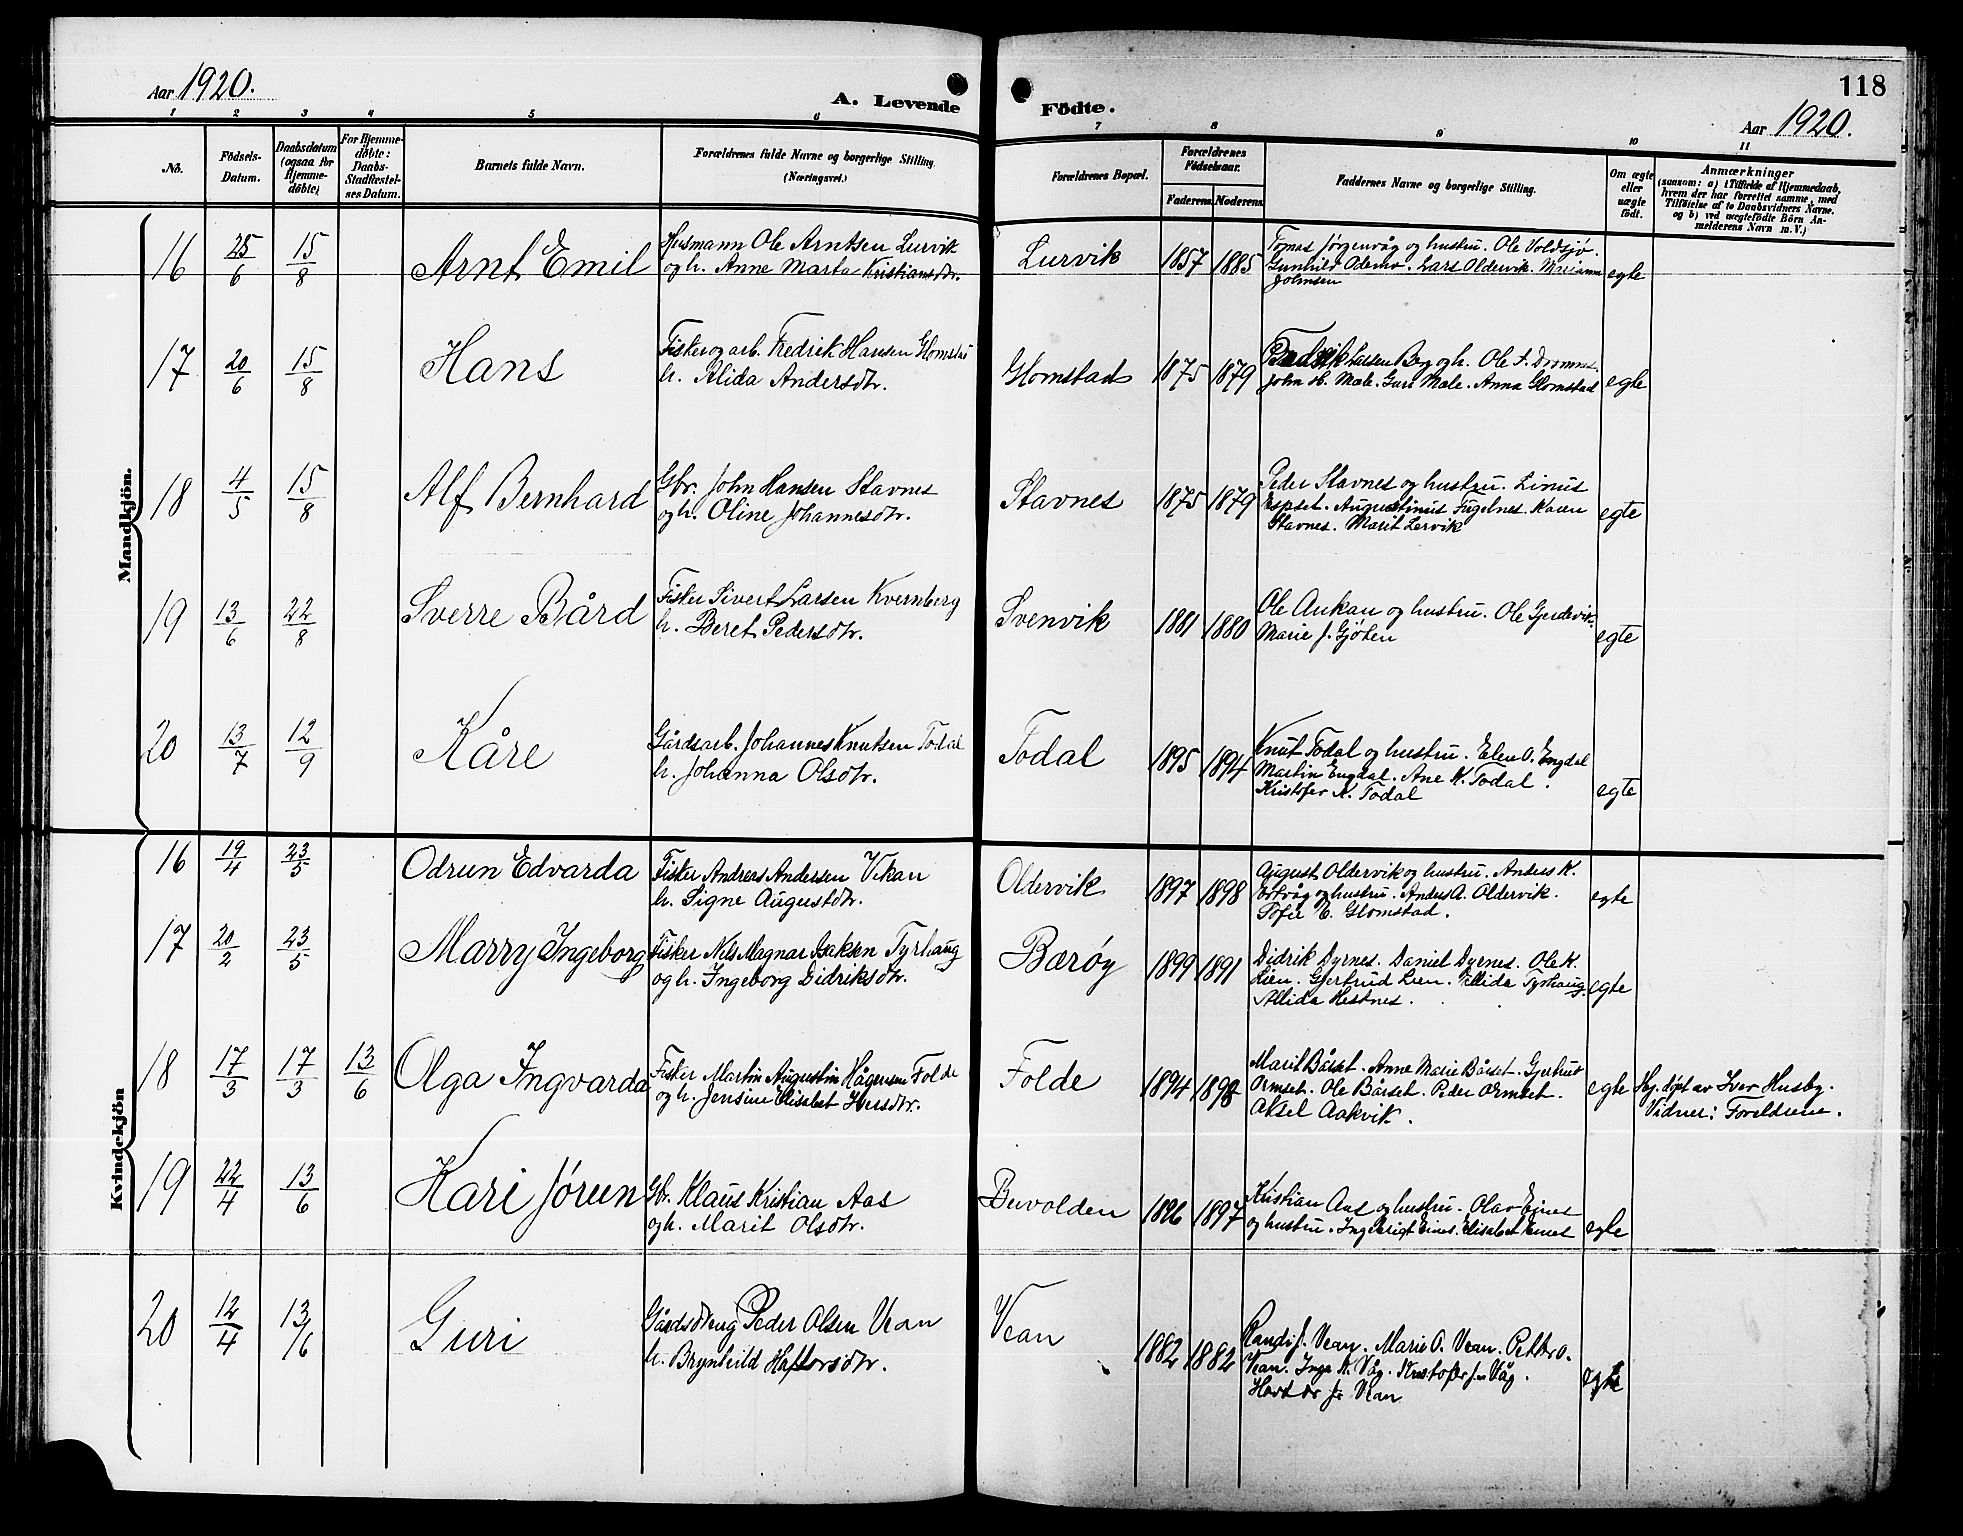 Aar 1920.
A. Levende Födte.
118
Aar 1920.
1 2 3 4 5 6 7 8 9 10 11
No.
Födsels-Datum.
Daabsdatum (ogsaa for Hjemme-döbte)
For Hjemme-döbte: Daabs-Stadfæstel-ses Datum.
Barnets fulde Navn.
Forældrenes fulde Navne og borgerlige Stilling. (Næringsvei.)
Forældrenes Bopæl.
Forældrenes Födselsaar.
Faderens. Moderens.
Faddernes Navne og borgerlige Stilling.
Om ægte eller uægte födt.
Anmærkninger
(saasom: a) i Tilfælde af Hjemmedaab,
hvem der har forrettet samme, med
Tilföielse af to Daabsvidners Navne.
og b) ved uægtefödte Börn An-
melderens Navn m. V.)
Mandkjön.
16 25/6 15/8 Arnt Emil
Husmann Ole Arntsen Lurvik
og h. Anne Marta Kristiansdtr.
Lurvik 1857 1885
Tomas Jørgenvåg og hustru. Ole Voldsjø.
Gunhild Odden. Lars Oldervik. Marianne
Johnsen
egte
17 20/6 15/8 Hans
Fisker og arb. Fredrik Hansen Glomstad
h. Alida Andersdtr.
Glomstad 1875 1879
Fredrik Larsen Berg og h. Ole F. Drommes.
John H. Mæle. Guri Mæle. Anna Glomstad
egte
18 4/5 15/8 Alf Bernhard
Gbr. John Hansen Stavnes
og h. Oline Johannesdtr.
Stavnes 1875 1879
Peder Stavnes og hustru. Linus
Espset. Augustinus Fugelnes. Karen
Stavnes. Marit Lervik
egte
19 13/6 22/8 Sverre Bård
Fisker Sivert Larsen Kvernberg
h. Beret Pedersdtr.
Svenvik 1881 1880
Ole Aukan og hustru. Ole Gjerdevik.
Marie J. Gjøten
egte
20 13/7 12/9 Kåre
Gårdsarb. Johannes Knutsen Todal
h. Johanna Olsdtr.
Todal 1895 1894
Knut Todal og hustru. Elen O. Engdal
Martin Engdal. Ane K. Todal.
Kristofer K. Todal
egte
Kvindekjön
16 19/4 23/5 Odrun Edvarda
Fisker Andreas Andersen Vikan
h. Signe Augustdtr.
Oldervik 1897 1898
August Oldervik og hustru. Anders K.
Ørtvåg og hustru. Anders A. Oldervik.
Sofie E. Glomstad.
egte
17 20/2 23/5 Marry Ingeborg
Fisker Nels Magnar Isaksen Tyrhaug
og h. Ingeborg Didriksdtr.
Bærøy 1899 1891
Didrik Dyrnes. Daniel Dyrnes. Ole K.
Lien. Gjertrud Lien. Allida Tyrhaug.
Allida Hestnes.
egte
18 17/3 17/3 13/6 Olga Ingvarda
Fisker Martin Augustin Hågensen Folde
og h. Jensine Elisabet Iversdtr.
Folde 1894 1898
Marit Bårset. Anne Marie Bårset. Gjertrud
Ormset. Ole Bårset. Peder Ormset.
Aksel Aakvik.
egte
Hj. døpt av Iver Husby.
Vidner: Foreldrene.
19 22/4 13/6 Kari Jórun
Gbr. Klaus Kristian Aas
og h. Marit Olsdtr.
Buvolden 1896 1897
Kristian Aas og hustru. Olav Eines
og hustru. Ingebrigt Eines. Elisabet Eines
egte
20 12/4 13/6 Guri
Gårdsdreng Peder Olsen Vean
h. Brynhild Haftorsdtr.
Vean 1882 1882
Randi J. Vean. Marie O. Vean. Petter O.
Vean. Inga K. Våg. Kristofer J. Våg.
Havtor Jr Vean
egte